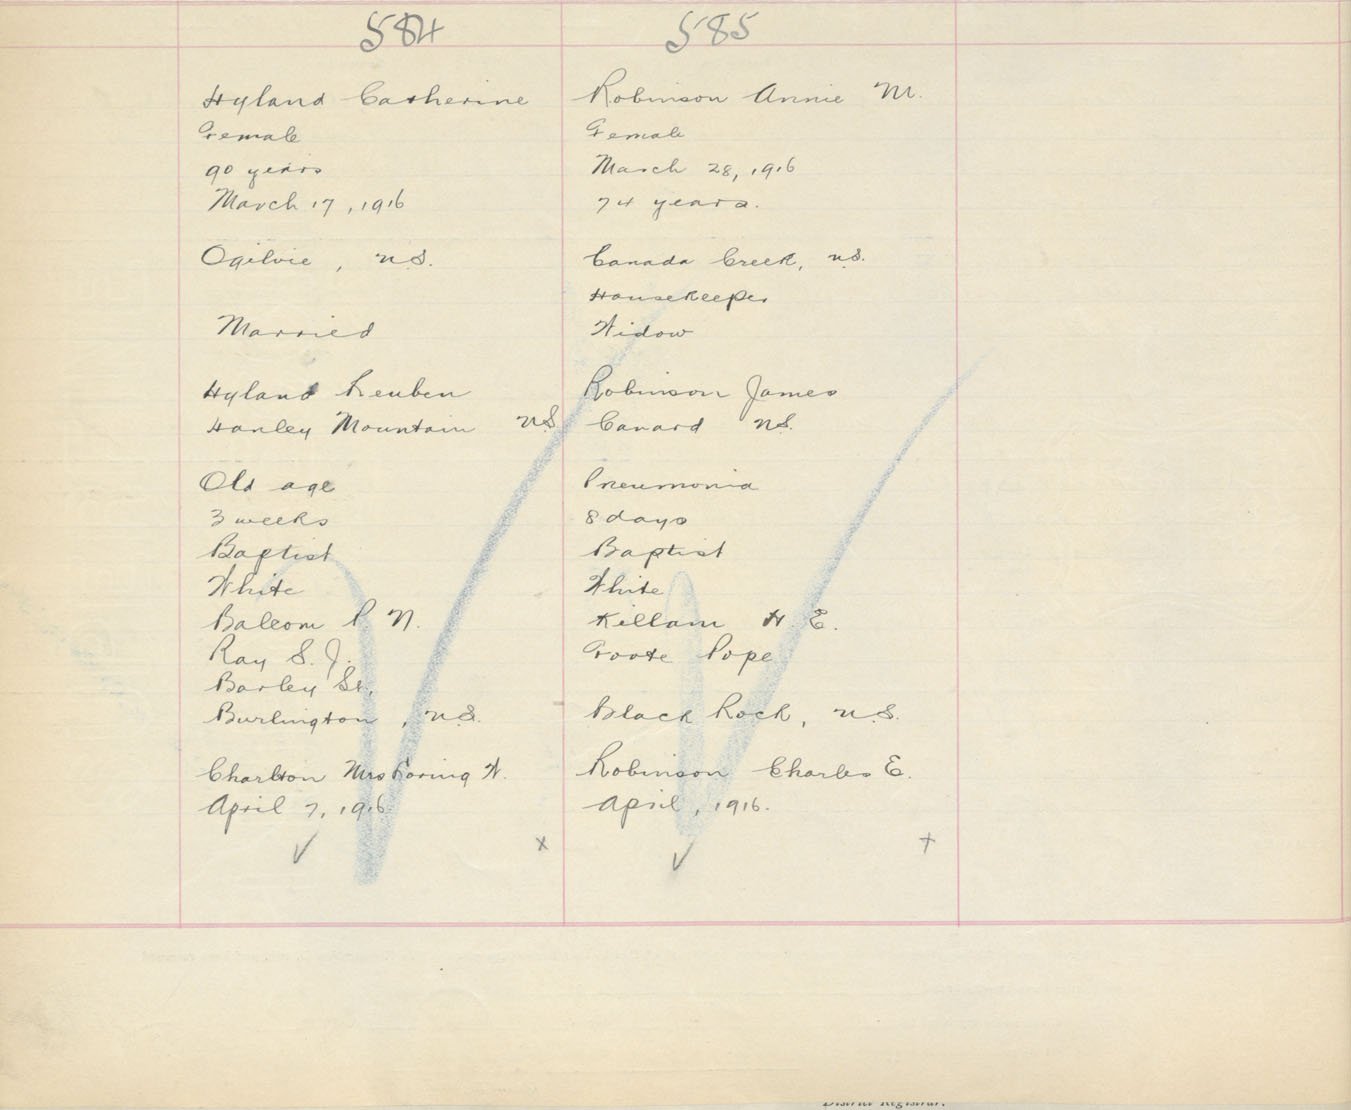 584
Hyland Catherine
Female
90 years
March 17, 1916
Ogilvie, N.S.
Married
Hyland Reuben
Hanley Mountain N.S.
Old age
3 weeks
Baptist
White
Balcom P N.
Ray S. J.
Burlington, N.S.
Charlton Mrs Loring W.
April 7, 1916
585
Robinson Annie M.
Female
March 28, 1916
74 years.
Canada Creek, N.S.
Housekeeper
Widow
Robinson James
Canard N.S.
Pneumonia
8 days
Baptist
White
Killam H. E.
Foote Pope
Black Rock, N.S.
Robinson Charles E.
April, 1916.
District Registrar.